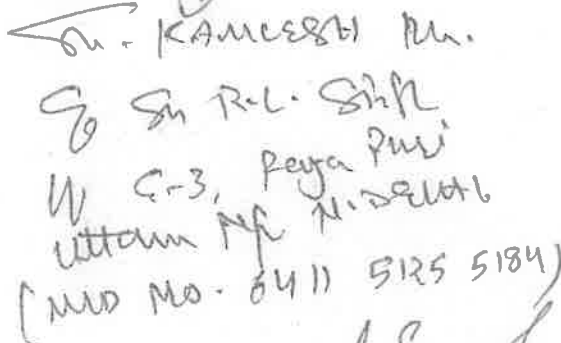 Sh. KAMLESH Kr.
S/o Sh R.L. Singh
C-3, Puri
Uttam Ngr N. DELHI
(UID No. 6411 5125 5184)